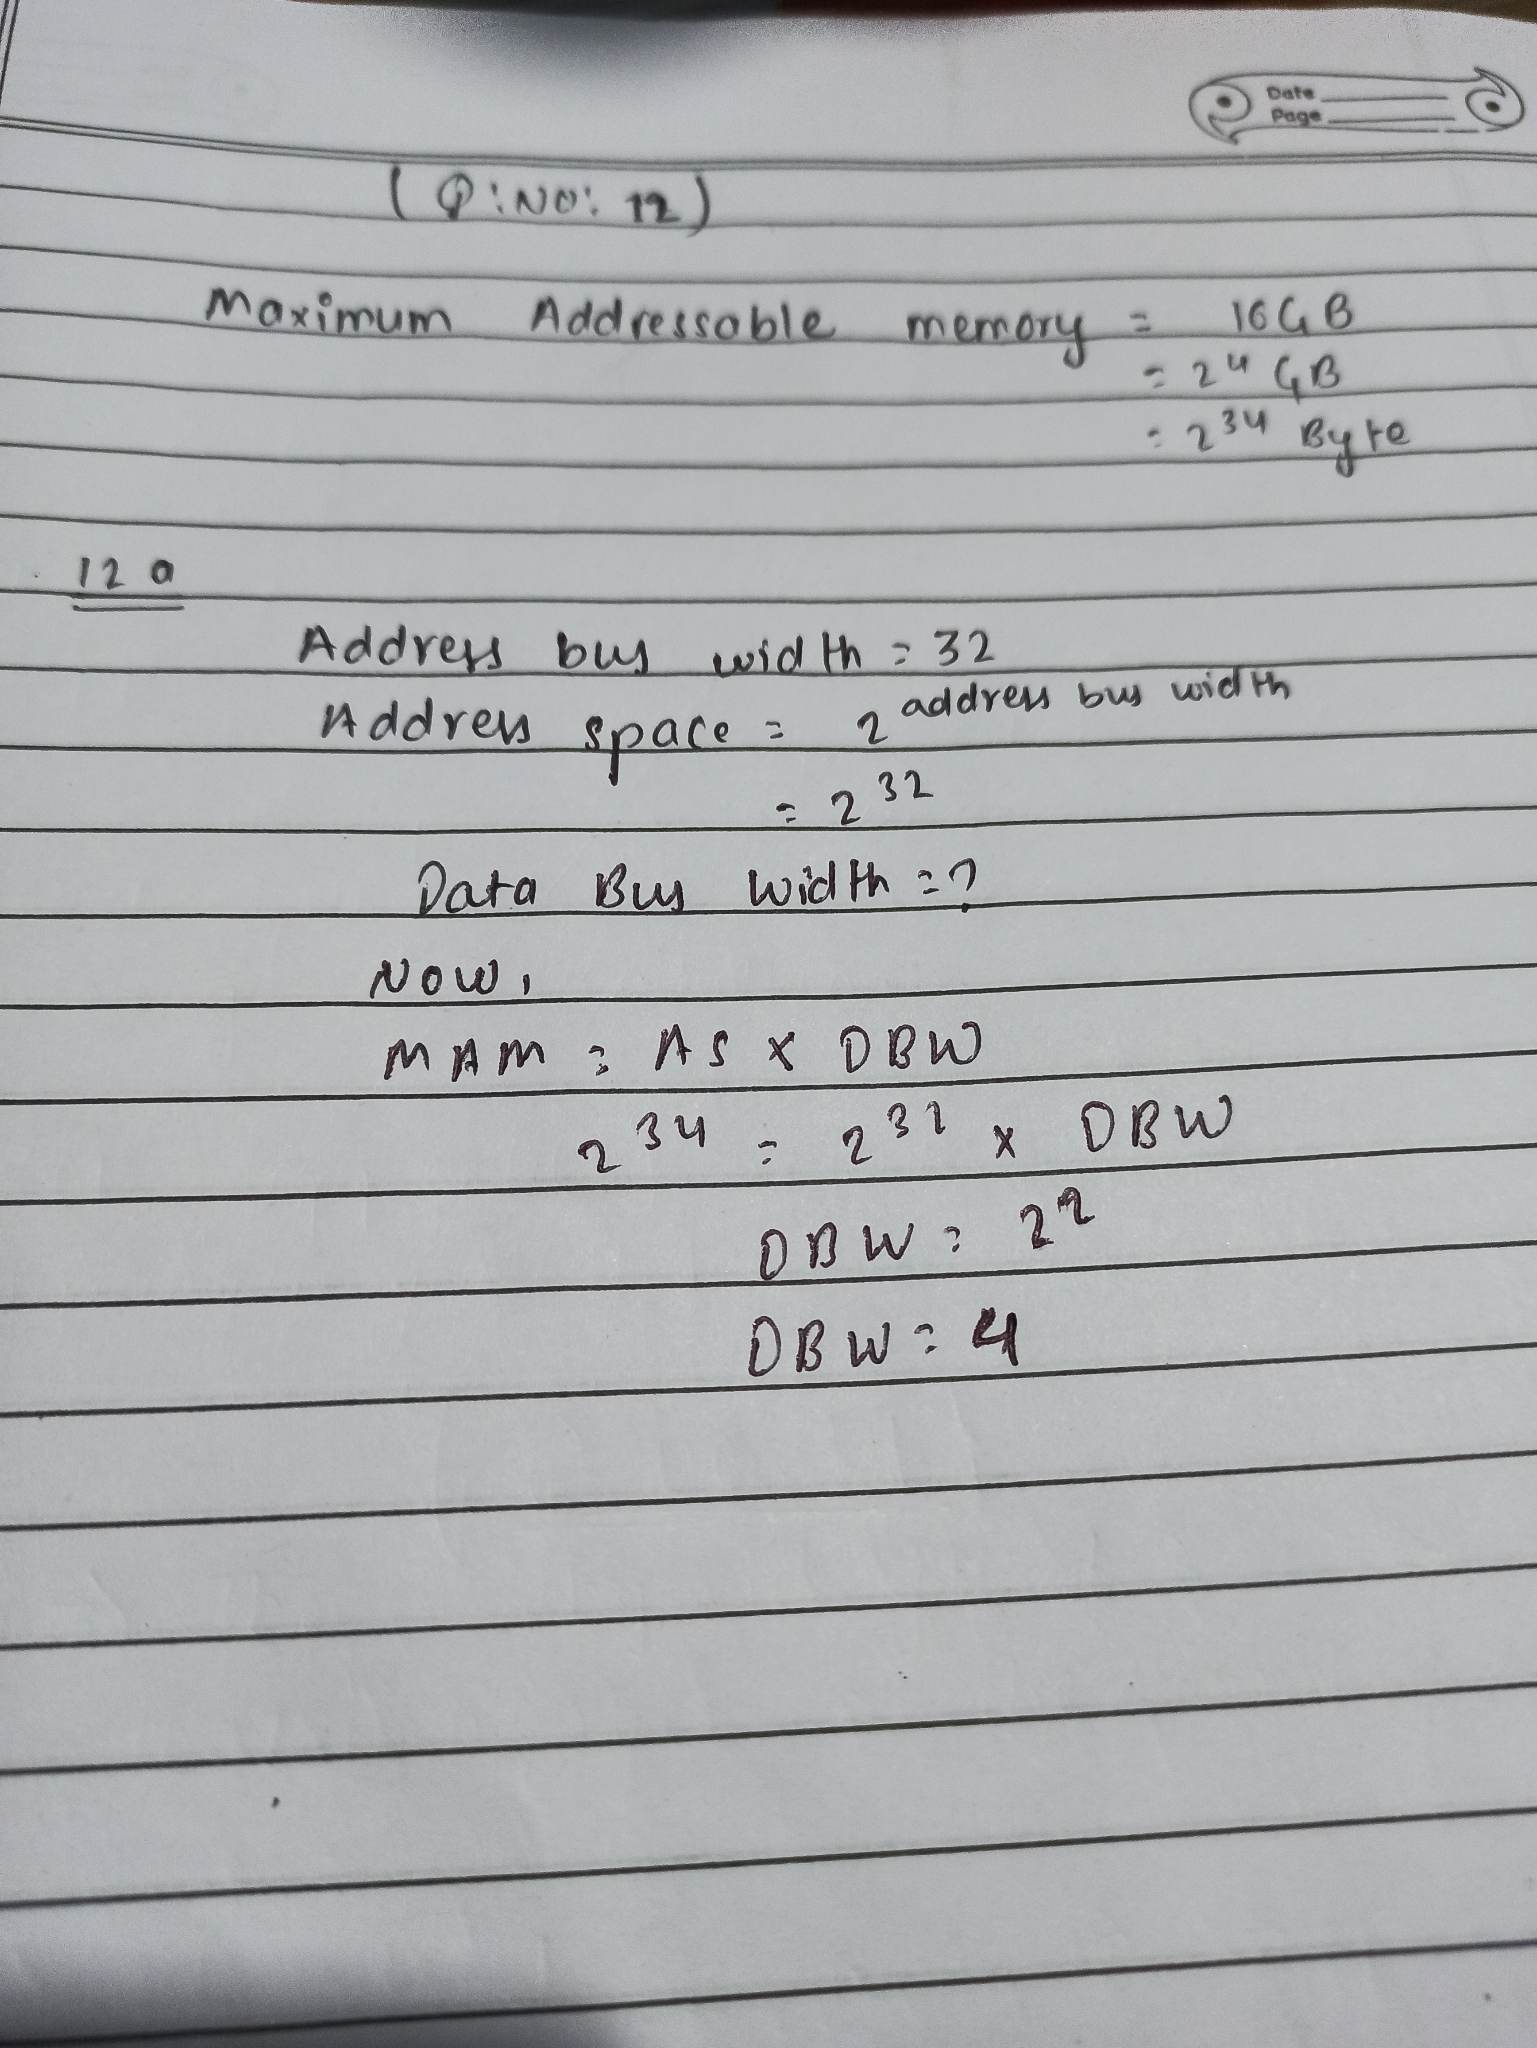 Date
Page
(Q:NO: 12)
Maximum Addressable memory = 16GB
= 2⁴ GB
= 2³⁴ Byte
12 a
Address bus width = 32
Address space = 2^address bus width
= 2³²
Data Bus Width = ?
Now,
MAM = AS x DBW
2³⁴ = 2³² x DBW
DBW = 2²
DBW = 4